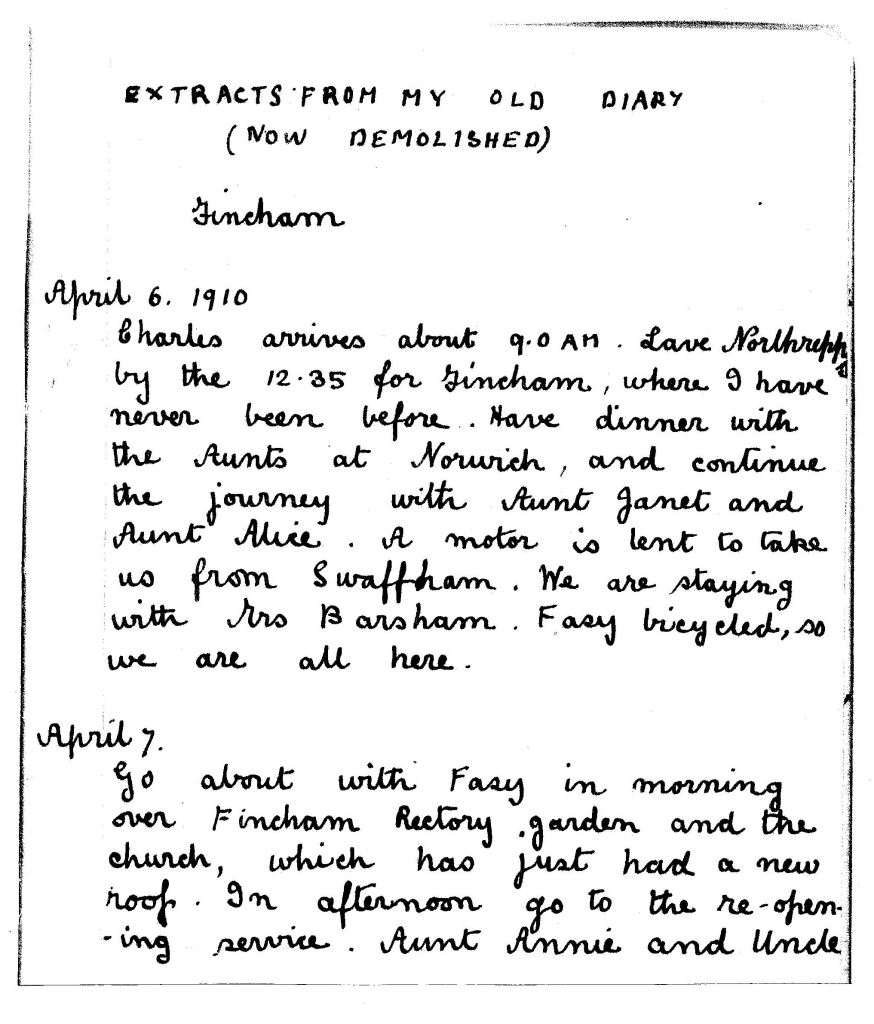 EXTRACTS FROM MY OLD DIARY
(NOW DEMOLISHED)
Fincham
April 6. 1910
Charles arrives about 9.0 AM. Lave Northrepps
by the 12.35 for Fincham, where I have
never been before. Have dinner with
the Aunts at Norwich, and continue
the journey with Aunt Janet and
Aunt Alice. A motor is lent to take
us from Swaffham. We are staying
with Mrs Barsham. Fasy bicycled, so
we are all here.
April 7.
Go about with Fasy in morning
over Fincham Rectory, garden and the
church, which has just had a new
roof. In afternoon go to the re-open-
-ing service. Aunt Annie and Uncle